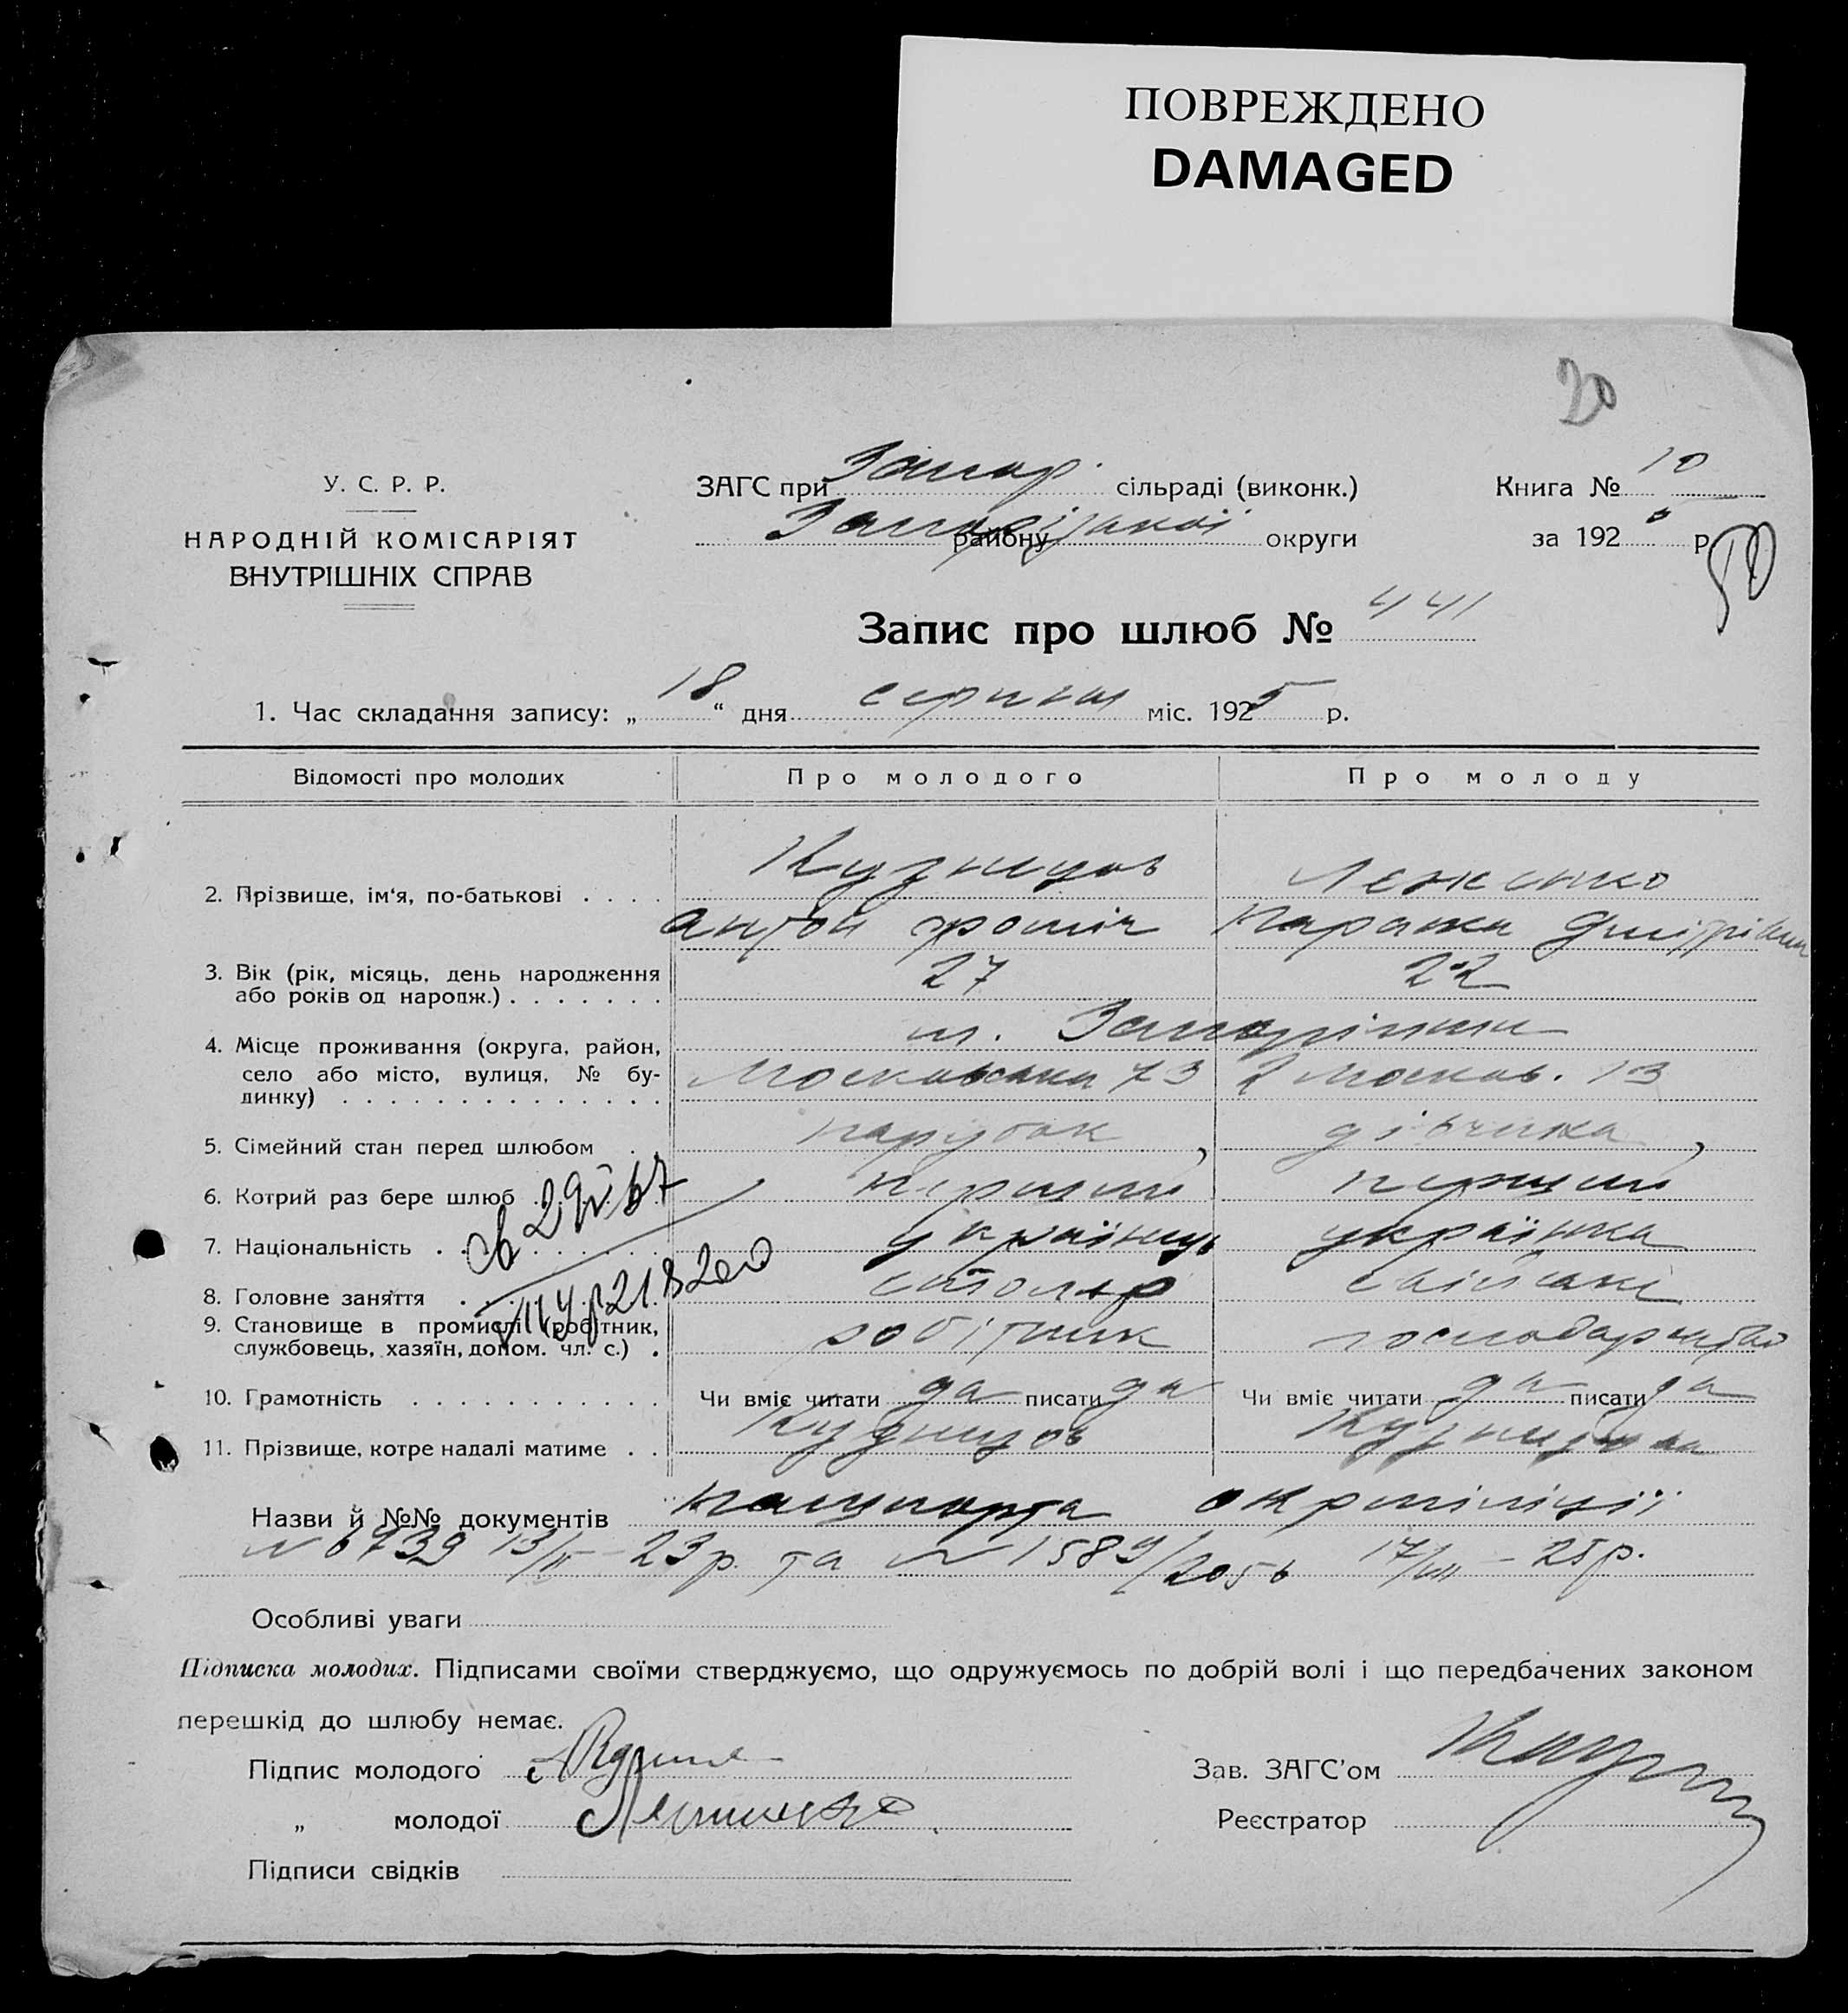 ПОВРЕЖДЕНО
DAMAGED
20
У. С. Р. Р.
НАРОДНІЙ КОМІСАРІЯТ
ВНУТРІШНІХ СПРАВ
ЗАГС при Запор. сільраді (виконк.)
Запорізької району округи
Книга № 10
за 192 5 р.
50
Запис про шлюб № 441
1. Час складання запису: „ 18 “ дня серпня міс. 1925 р.
Відомості про молодих Про молодого Про молоду
2. Прізвище, ім'я, по-батькові . . . . Кузнецов Леженко
антон Дмітрівна
3. Вік (рік, місяць, день народження
або років од народж.) . . . . . . . 27 22
4. Місце проживання (округа, район, м. Запоріжжя
село або місто, вулиця, № бу-
динку) . . . . . . . . . . . . . . Московська 73 2 Москов. 13
5. Сімейний стан перед шлюбом . . парубок, дівчина,
6. Котрий раз бере шлюб . . . . . перший перший
7. Національність . . . . . . . . українець українка
8. Головне заняття . . . . . . . столяр
9. Становище в промислі (робітник,
службовець, хазяїн, допом. чл. с.) . робітник господарство
10. Грамотність . . . . . . . . . . . Чи вміє читати да писати да Чи вміє читати да писати да
11. Прізвище, котре надалі матиме . . Кузнецов Кузнецова
Назви й №№ документів пашпорта окрміліції
№ 6739 13/II - 23 р. та № 1589/2056 17/VIII - 25 р.
Особливі уваги
Підписка молодих. Підписами своїми стверджуємо, що одружуємось по добрій волі і що передбачених законом
перешкід до шлюбу немає.
Підпис молодого
Зав. ЗАГС'ом
„ молодої
Реєстратор
Підписи свідків